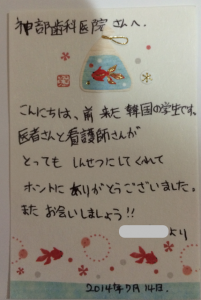 神部歯科医院 さんへ.
こんにちは、前 来た 韓国の学生です。
医者さんと 看護師さんが
とっても しんせつにしてくれて
ホントに ありがとうございました。
また お会いしましょう!!
より
2014年7月14日.